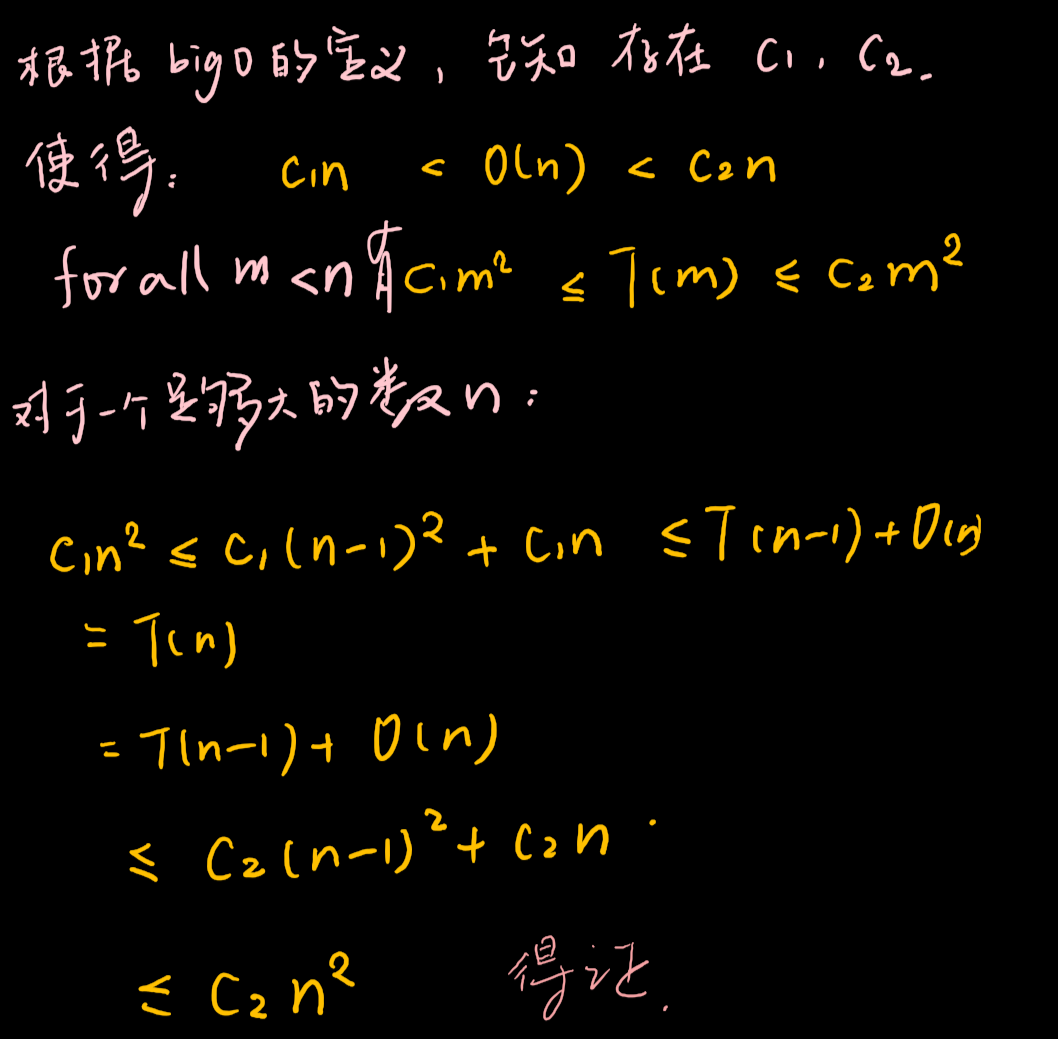 根据 big O 的定义，已知 存在 C₁, C₂.
使得： C₁n < O(n) < C₂n
for all m <n 有 C₁m² ≤ T(m) ≤ C₂m²
对于一个足够大的数 n：
C₁n² ≤ C₁(n-1)² + C₁n ≤ T(n-1) + O(n)
= T(n)
= T(n-1) + O(n)
≤ C₂(n-1)² + C₂n .
≤ C₂n² 得证.